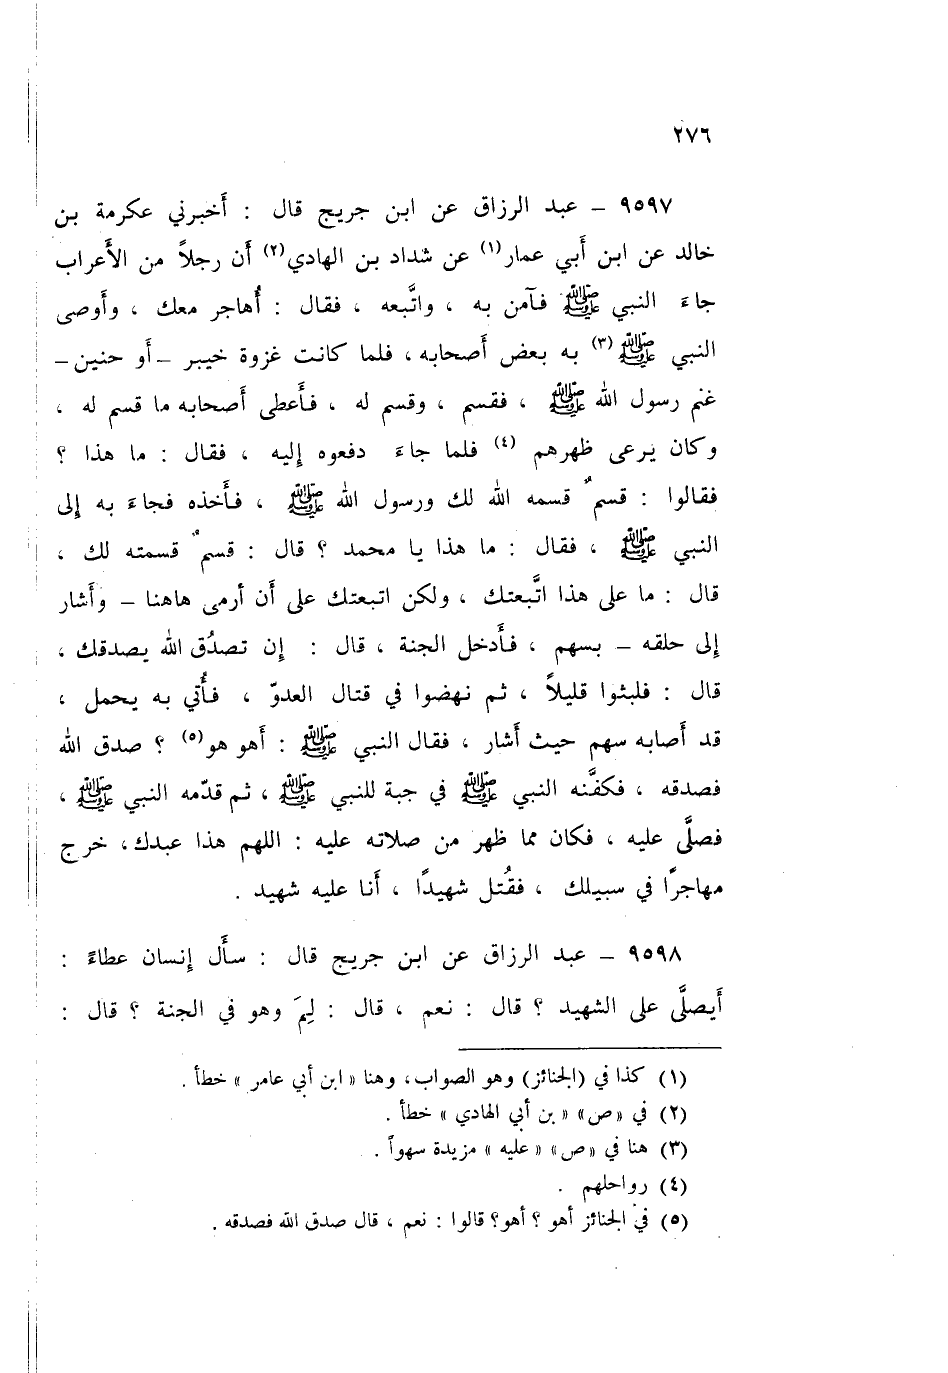 ٢٧٦
٩٥٩٧ – عبد الرزاق عن ابن جريج قال : أَخبرني عكرمة بن
خالد عن ابن أَبي عمار(١) عن شداد بن الهادي(٢) أَن رجلاً من الأَعراب
جاءَ النبي ﷺ فآمن به ، واتَّبعه ، فقال : أُهاجر معك ، وأَوصى
النبي ﷺ(٣) به بعض أَصحابه ، فلما كانت غزوة خيبر – أَو حنين –
غنم رسول الله ﷺ ، فقسم ، وقسم له ، فأَعطى أَصحابه ما قسم له ،
وكان يرعى ظهرهم (٤) فلما جاءَ دفعوه إِليه ، فقال : ما هذا ؟
فقالوا : قسمٌ قسمه الله لك ورسول الله ﷺ ، فأَخذه فجاءَ به إِلى
النبي ﷺ ، فقال : ما هذا يا محمد ؟ قال : قسمٌ قسمته لك ،
قال : ما على هذا اتَّبعتك ، ولكن اتبعتك على أَن أُرمى هاهنا – وأَشار
إِلى حلقه – بسهم ، فأَدخل الجنة ، قال : إِن تصدُق الله يصدقك ،
قال : فلبثوا قليلاً ، ثم نهضوا في قتال العدوّ ، فأُتي به يحمل ،
قد أَصابه سهم حيث أَشار ، فقال النبي ﷺ : أَهو هو(٥) ؟ صدق الله
فصدقه ، فكفَّنه النبي ﷺ في جبة للنبي ﷺ ، ثم قدّمه النبي ﷺ ،
فصلَّى عليه ، فكان مما ظهر من صلاته عليه : اللهم هذا عبدك ، خرج
مهاجرًا في سبيلك ، فقُتل شهيدًا ، أَنا عليه شهيد .
٩٥٩٨ – عبد الرزاق عن ابن جريج قال : سأَل إِنسان عطاءً :
أَيصلَّى على الشهيد ؟ قال : نعم ، قال : لِمَ وهو في الجنة ؟ قال :
(١) كذا في (الجنائز) وهو الصواب ، وهنا « ابن أبي عامر » خطأ .
(٢) في «ص» « بن أبي الهادي » خطأ .
(٣) هنا في «ص» « عليه » مزيدة سهواً .
(٤) رواحلهم .
(٥) في الجنائز أهو ؟ أهو؟ قالوا : نعم ، قال صدق الله فصدقه .